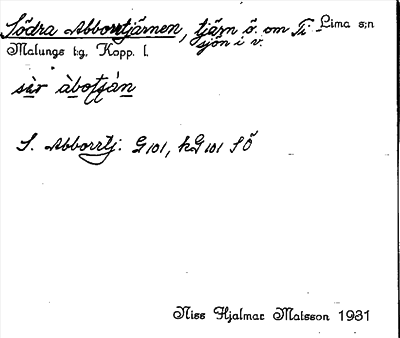 Södra Abborrtjärnen, tjärn ö. om Ti- Lima s:n
sjön i v.
Malungs t:g, Kopp. l.
sèr àbotján
S. Abborrtj. G 101, kG 101 SÖ
Niss Hjalmar Matsson 1931